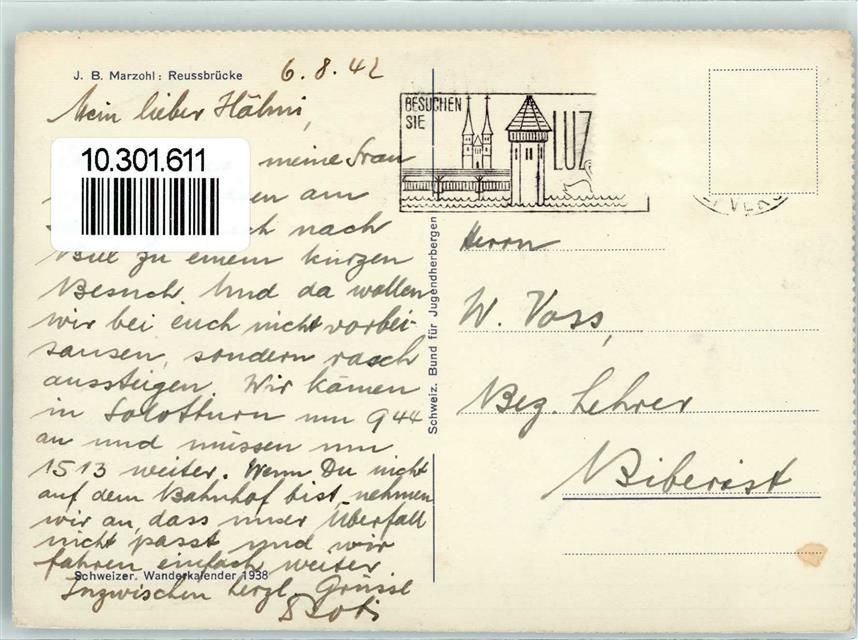 J. B. Marzohl: Reussbrücke
6.8.42
Mein lieber Hähni,
10.301.611
meine Frau
en am
ch nach
Biel zu einem kurzen
Besuch. Und da wollen
wir bei euch nicht vorbei-
sausen, sondern rasch
aussteigen. Wir kämen
in Solothurn um 9 44
an und müssen um
15 13 weiter. Wenn Du nicht
auf dem Bahnhof bist, nehmen
wir an, dass unser Überfall
nicht passt und wir
fahren einfach weiter
Schweizer. Wanderkalender 1938
Inzwischen herzl. Grüsse
Schweiz. Bund für Jugendherbergen
BESUCHEN
SIE
LUZ
Herrn
W. Voss,
Bez. Lehrer
Biberist